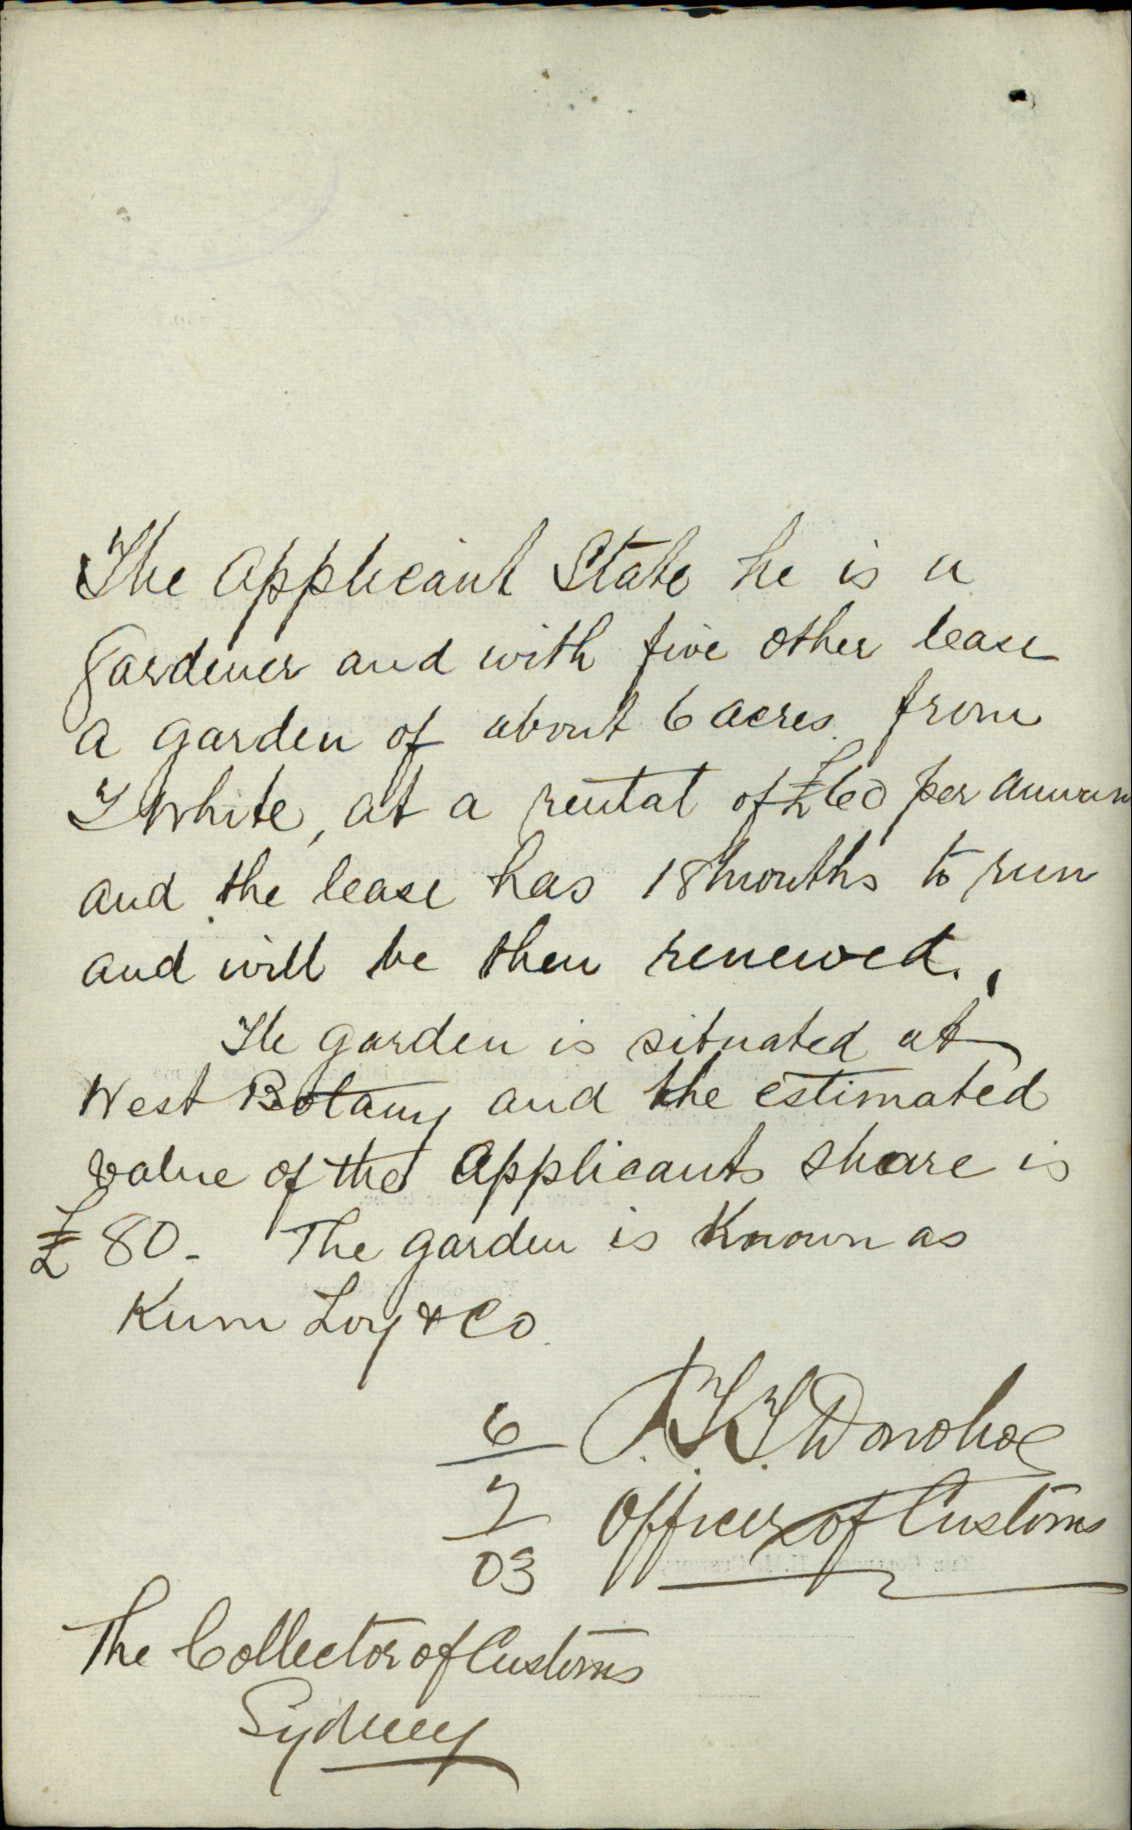 The Applicant State he is a
Gardener and with five other lease
a garden of about 6 acres from
T White, at a rental of £60 per annum
and the lease has 18 months to run
and will be then renewed.
The garden is situated at
West Botany and the estimated
value of the Applicants share is
£80. The garden is Known as
Kum Loy & Co.
6 J.T.T. Donohoe
7 Officer of Customs
03
The Collector of Customs
Sydney